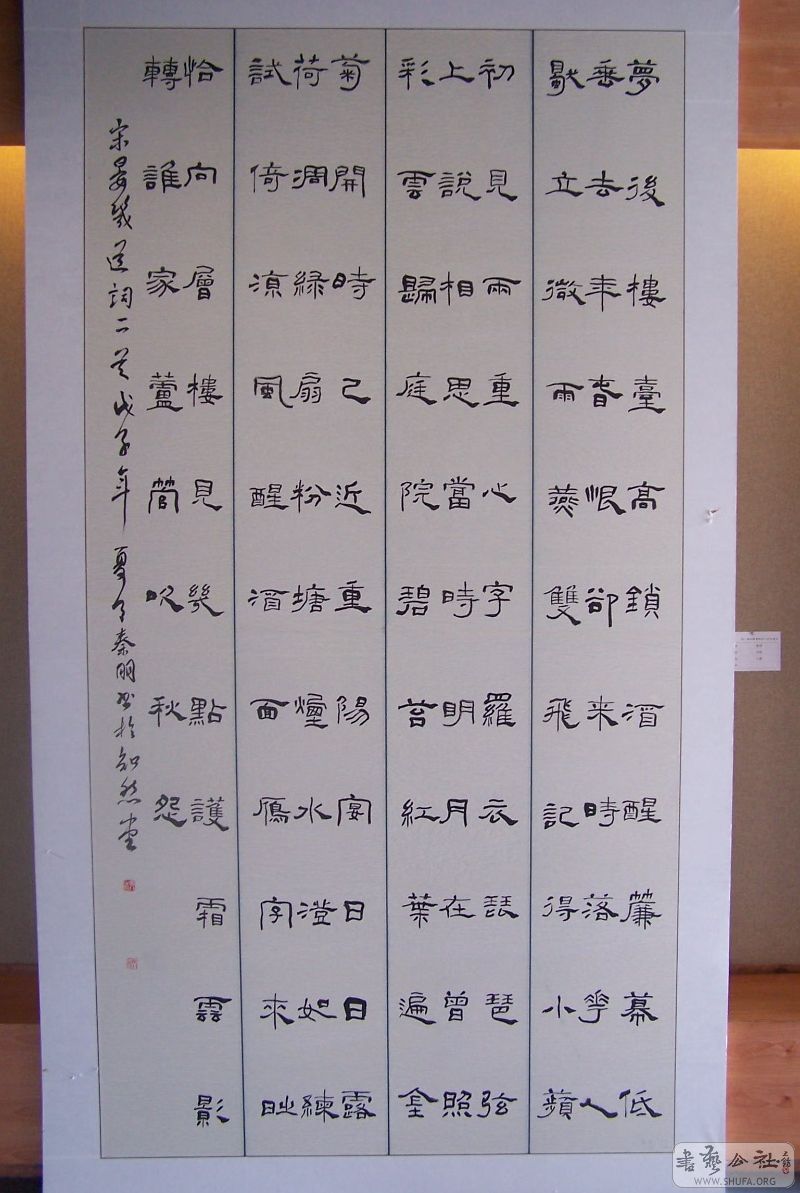 夢後樓臺高鎖酒醒簾幕低
垂去年春恨卻来時落花人
獨立微雨燕雙飛記得小蘋
初見兩重心字羅衣琵琶弦
上說相思當時明月在曾照
彩雲歸庭院碧苔紅葉遍金
菊開時已近重陽宴日日露
荷凋綠扇粉塘煙水澄如練
試倚涼風醒酒面鴈字來時
恰向層樓見幾點護霜雲影
轉誰家蘆管吹秋怨
宋晏幾道詞二首戊子年夏月秦明書於知然堂
書藝公社
WWW.SHUFA.ORG